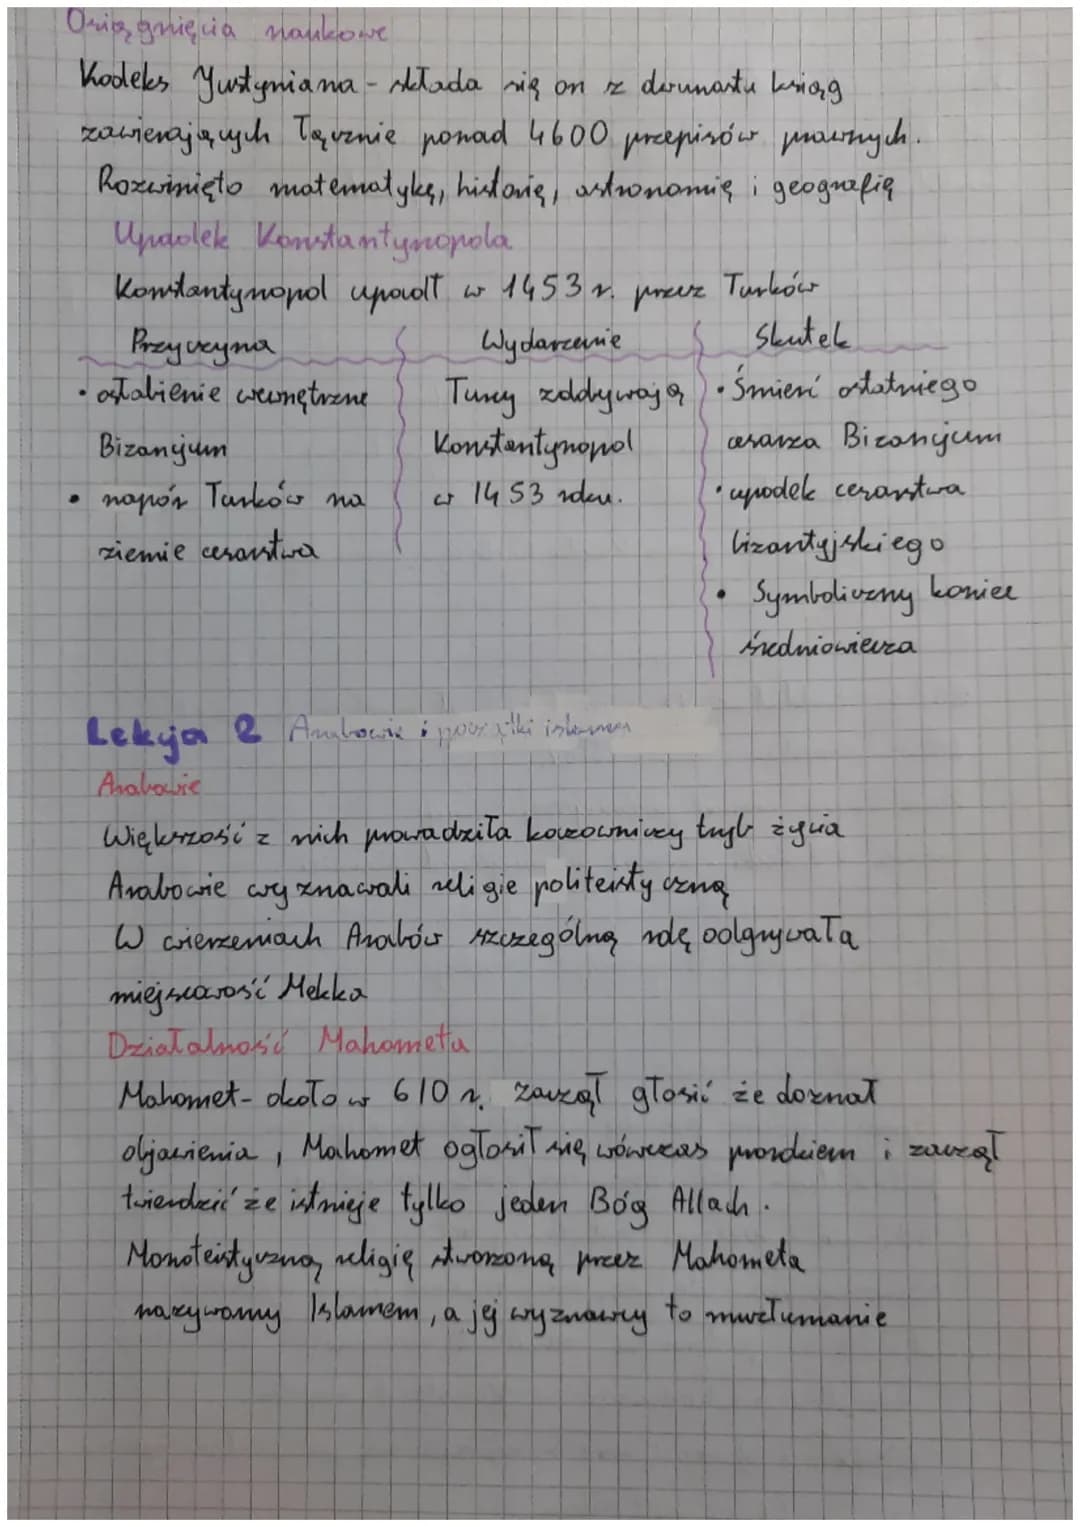 Osiągnięcia naukowe
Kodeks Justyniana - składa się on z dwunastu ksiąg
zawierających łącznie ponad 4600 przepisów prawnych.
Rozwinięto matematykę, historię, astronomię i geografię
Upadek Konstantynopola
Konstantynopol upadł w 1453 r. przez Turków
Przyczyna Wydarzenie Skutek
• osłabienie wewnętrzne Turcy zddywają • Śmierć ostatniego
Bizancjum Konstantynopol cesarza Bizancjum
• napór Turków na w 1453 roku. • upadek cesarstwa
ziemie cesarstwa bizantyjskiego
• Symboliczny koniec
średniowiecza
Lekcja 2 Arabowie i początki islamu
Arabowie
Większość z nich prowadziła koczowniczy tryb życia
Arabowie wyznawali religie politeistyczną
W wierzeniach Arabów szczególną rolę odgrywała
miejscowość Mekka
Działalność Mahometa
Mahomet- około w 610 r. zaczął głosić że doznał
objawienia, Mahomet ogłosił się wówczas prorokiem i zaczął
twierdzić że istnieje tylko jeden Bóg Allach.
Monoteistyczną religię stworzoną przez Mahometa
nazywamy Islamem, a jej wyznawcy to muzłumanie